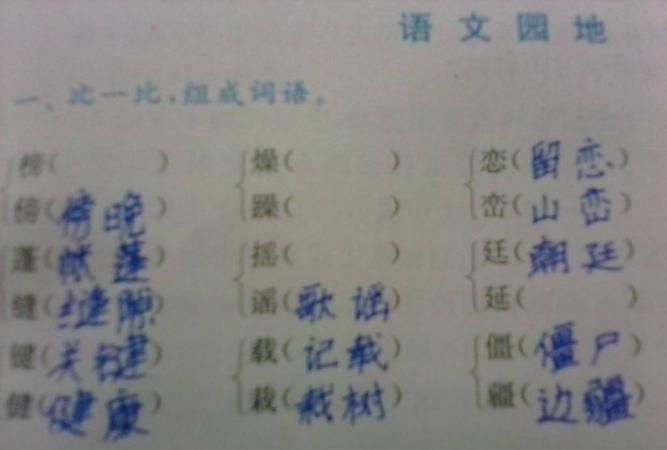 语文园地
一、比一比,组成词语。
榜( ) 燥( ) 恋(留恋)
傍(傍晚) 躁( ) 峦(山峦)
蓬(帐蓬) 摇( ) 廷(朝廷)
缝(缝隙) 谣(歌谣) 延( )
键(关键) 载(记载) 僵(僵尸)
健(健康) 栽(栽树) 疆(边疆)